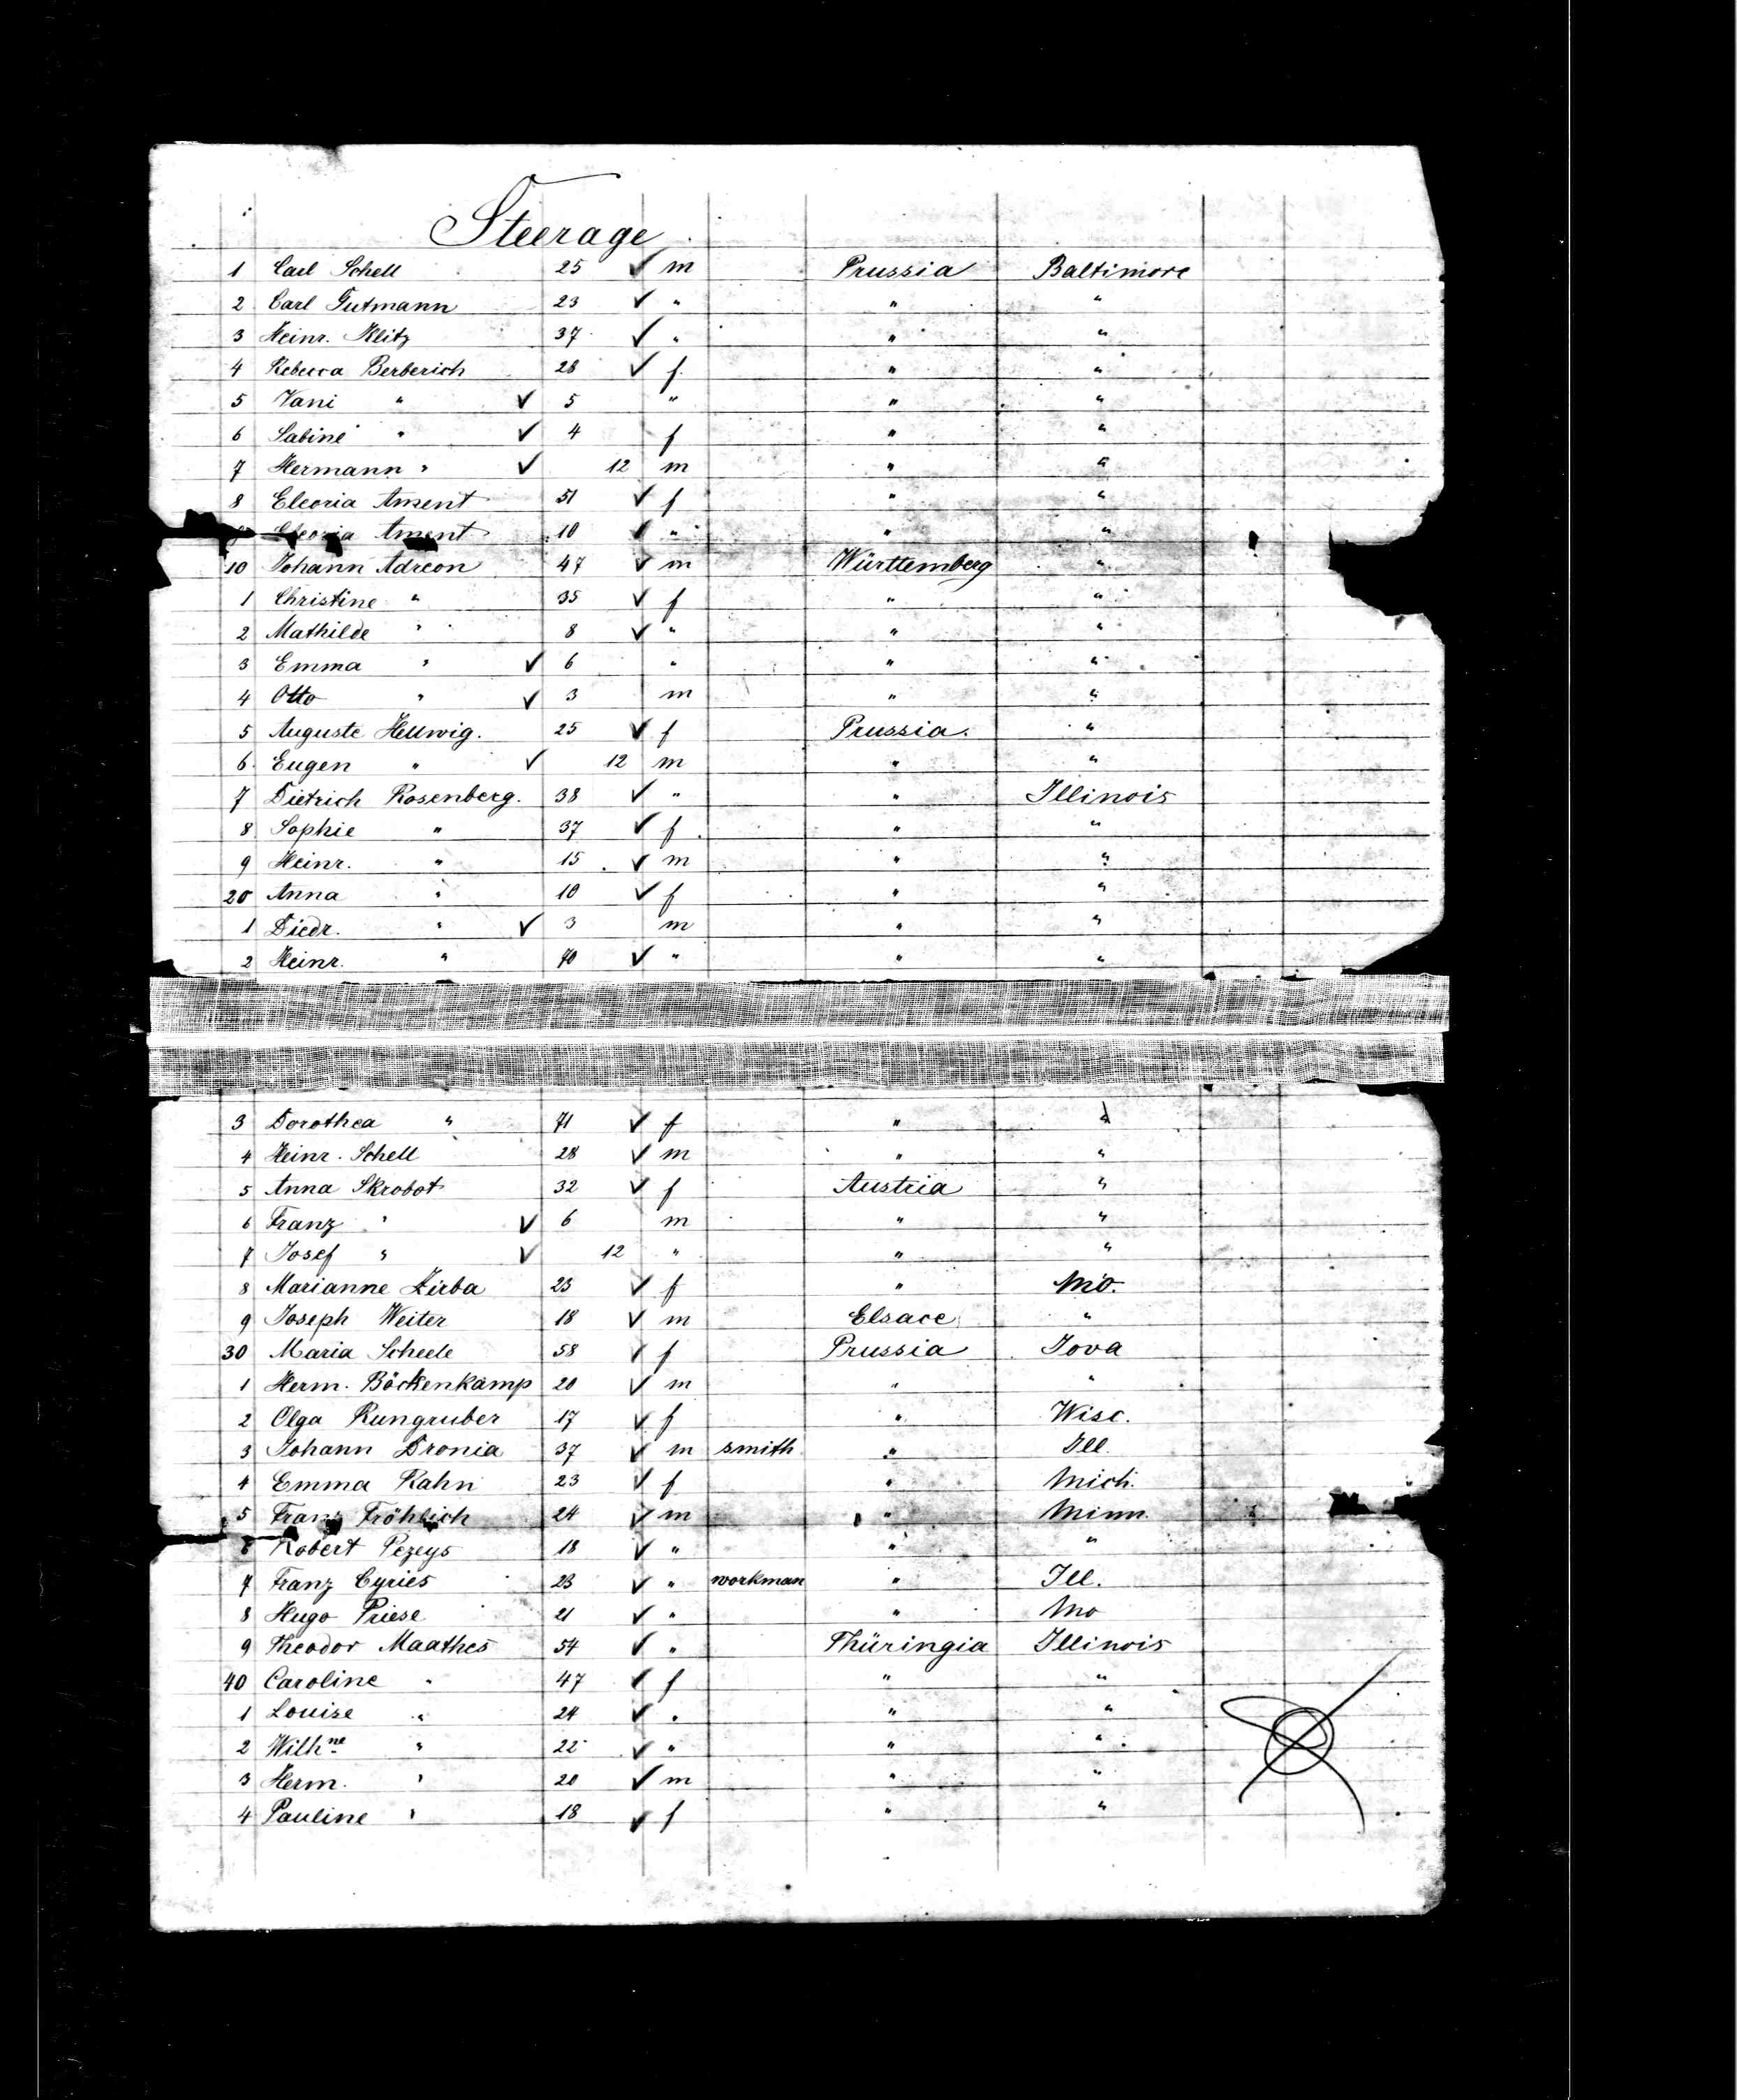 Steerage
1 Carl Schell 25 ✓ m Prussia Baltimore
2 Carl Gutmann 23 ✓ " " "
3 Heinr. Klitz 37 ✓ " " "
4 Rebecca Berberich 28 ✓ f. " "
5 Vani " ✓ 5 " " "
6 Sabine " ✓ 4 f " "
7 Hermann " ✓ 12 m " "
8 Eleoria Ament 51 ✓ f " "
Eleoria Ament 10 ✓ " " "
10 Johann Adreon 47 ✓ m Württemberg "
1 Christine " 35 ✓ f " "
2 Mathilde " 8 ✓ " " "
3 Emma " ✓ 6 " " "
4 Otto " ✓ 3 m " "
5 Auguste Hellwig. 25 ✓ f Prussia. "
6. Eugen " ✓ 12 m " "
7 Dietrich Rosenberg. 38 ✓ " " Illinois
8 Sophie " 37 ✓ f. " "
9 Heinr. " 15 ✓ m " "
20 Anna " 10 ✓ f " "
1 Diedr. " ✓ 3 m " "
2 Heinr. " 70 ✓ " " "
3 Dorothea " 71 ✓ f " "
4 Heinr. Schell 28 ✓ m " "
5 Anna Skrobot 32 ✓ f Austria "
6 Franz " ✓ 6 m " "
7 Josef " ✓ 12 " " "
8 Marianne Zirba 23 ✓ f " Mo.
9 Joseph Weiter 18 ✓ m Elsace "
30 Maria Scheele 58 ✓ f Prussia Iova
1 Herm. Böckenkamp 20 ✓ m " "
2 Olga Rungruber 17 ✓ f " Wisc.
3 Johann Dronia 37 ✓ m smith " Ill.
4 Emma Kahn 23 ✓ f " Mich.
5 Franz Fröhlich 24 ✓ m " Minn.
6 Robert Pezeys 18 ✓ " " "
7 Franz Cyries 23 ✓ " workman " Ill.
8 Hugo Priese 21 ✓ " " Mo
9 Theodor Maathes 54 ✓ " Thüringia Illinois
40 Caroline " 47 ✓ f " "
1 Louise " 24 ✓ " " "
2 Wilhne " 22 ✓ " " "
3 Herm. " 20 ✓ m " "
4 Pauline " 18 ✓ f " "